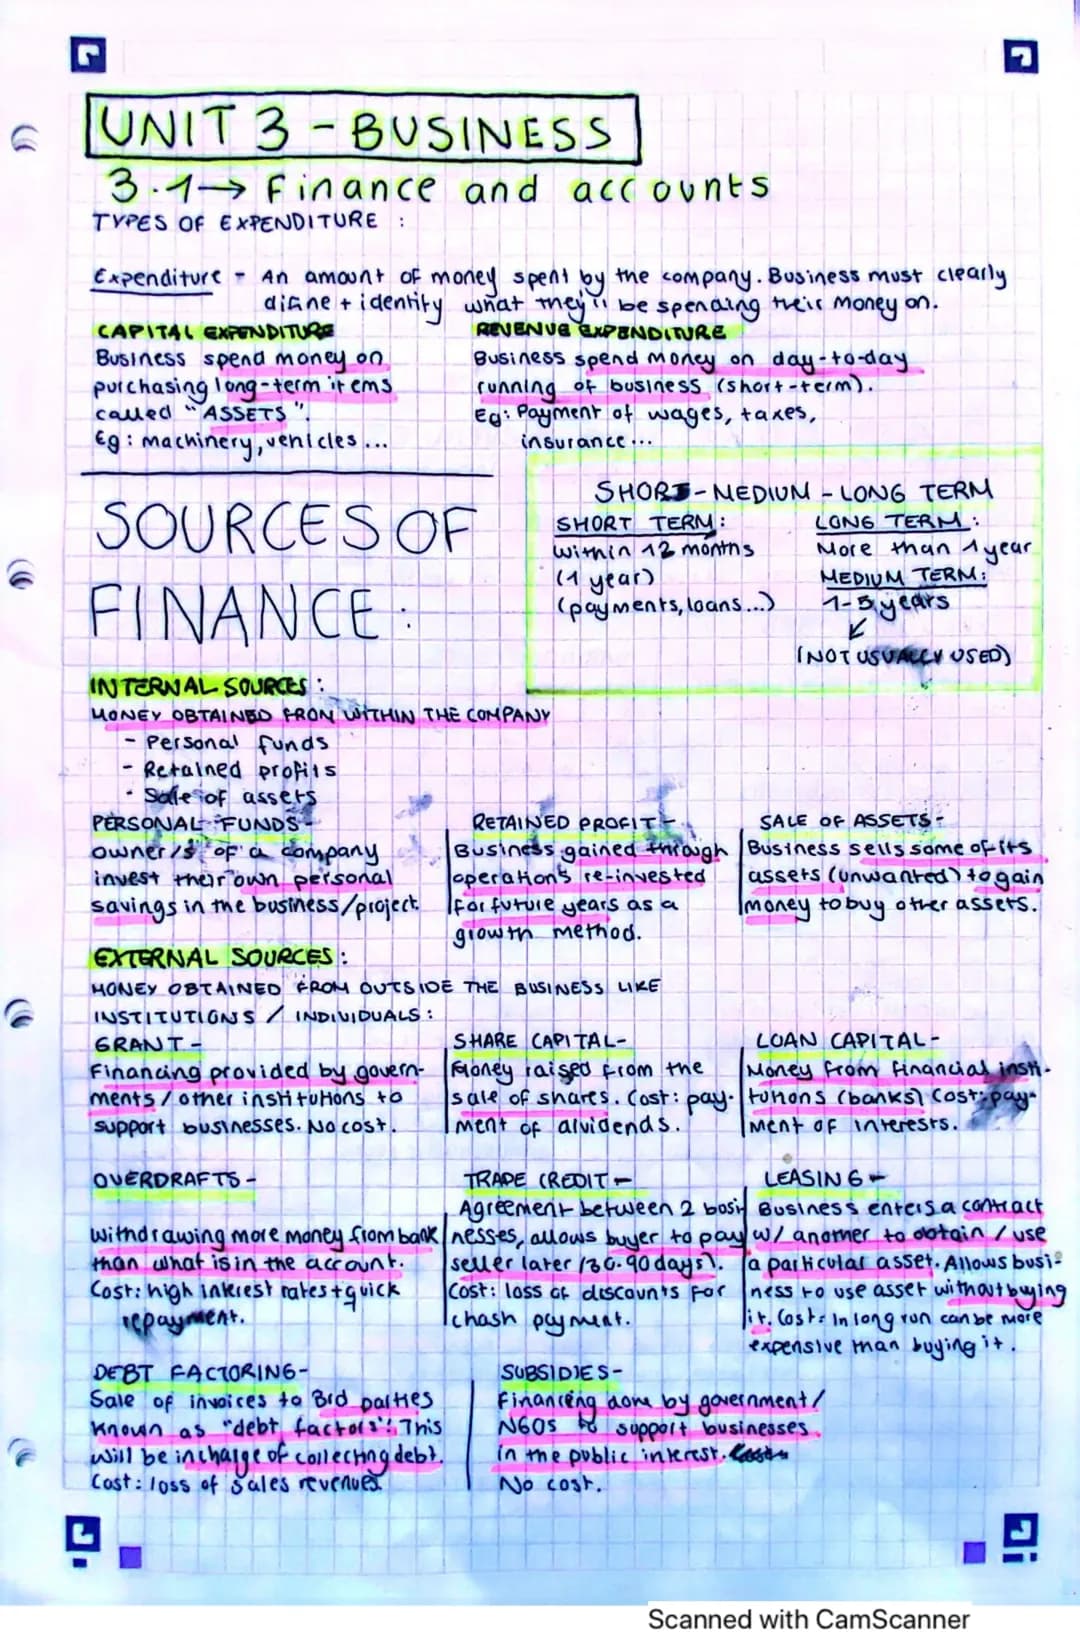 UNIT 3 - BUSINESS
3.1→ Finance and accounts
TYPES OF EXPENDITURE :
Expenditure - An amount of money spent by the company. Business must clearly
difine + identity what they'll be spending their money on.
CAPITAL EXPENDITURE
Business spend money on
purchasing long-term items
called "ASSETS".
Eg: machinery, vehicles...
REVENUE EXPENDITURE
Business spend money on day-to-day
running of business (short-term).
Eg: Payment of wages, taxes,
insurance...
SHORT-MEDIUM-LONG TERM
SHORT TERM:
within 12 months
(1 year)
(payments, loans...)
LONG TERM:
More than 1 year
MEDIUM TERM:
1-5 years
↙
(NOT USUALLY USED)
SOURCES OF
FINANCE:
INTERNAL SOURCES:
MONEY OBTAINED FROM WITHIN THE COMPANY
- Personal funds
- Retained profits
- Sale of assets
PERSONAL FUNDS-
owner/s of a company
invest their own personal
savings in the business/project
RETAINED PROFIT-
Business gained through
operation's re-invested
for future years as a
growth method.
SALE OF ASSETS-
Business sells some of its
assets (unwanted) to gain
money to buy other assets.
EXTERNAL SOURCES:
MONEY OBTAINED FROM OUTSIDE THE BUSINESS LIKE
INSTITUTIONS / INDIVIDUALS:
GRANT-
Financing provided by govern-
ments / other institutions to
support businesses. No cost.
SHARE CAPITAL-
Money raised from the
sale of shares. Cost: pay-
ment of dividends.
LOAN CAPITAL-
Money from financial insti-
tutions (banks) Cost: pay-
ment of interests.
OVERDRAFTS-
withdrawing more money from bank
than what is in the account.
Cost: high interest rates + quick
repayment.
TRADE CREDIT-
Agreement between 2 busi
nesses, allows buyer to pay
seller later (30-90 days).
Cost: loss of discounts for
chash payment.
LEASING-
Business enters a contract
w/ another to obtain / use
a particular asset. Allows busi-
ness to use asset without buying
it. Cost: In long run can be more
expensive than buying it.
DEBT FACTORING-
Sale of invoices to 3rd parties
known as "debt factors". This
will be in charge of collecting debt.
Cost: loss of sales revenues.
SUBSIDIES-
Financing done by government/
NGOS to support businesses
in the public interest.
No cost.
Scanned with CamScanner